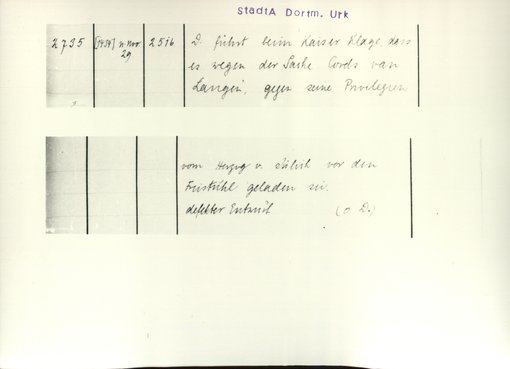 StadtA Dortm. Urk
2735 [1454] n. Nov. 29 2516 D. führt beim Kaiser Klage, dass
es wegen der Sache Cords van
Langen, gegen seine Privilegien
vom Herzog v. Jülich vor den
Freistuhl geladen sei.
defekter Entwurf (o. D.)